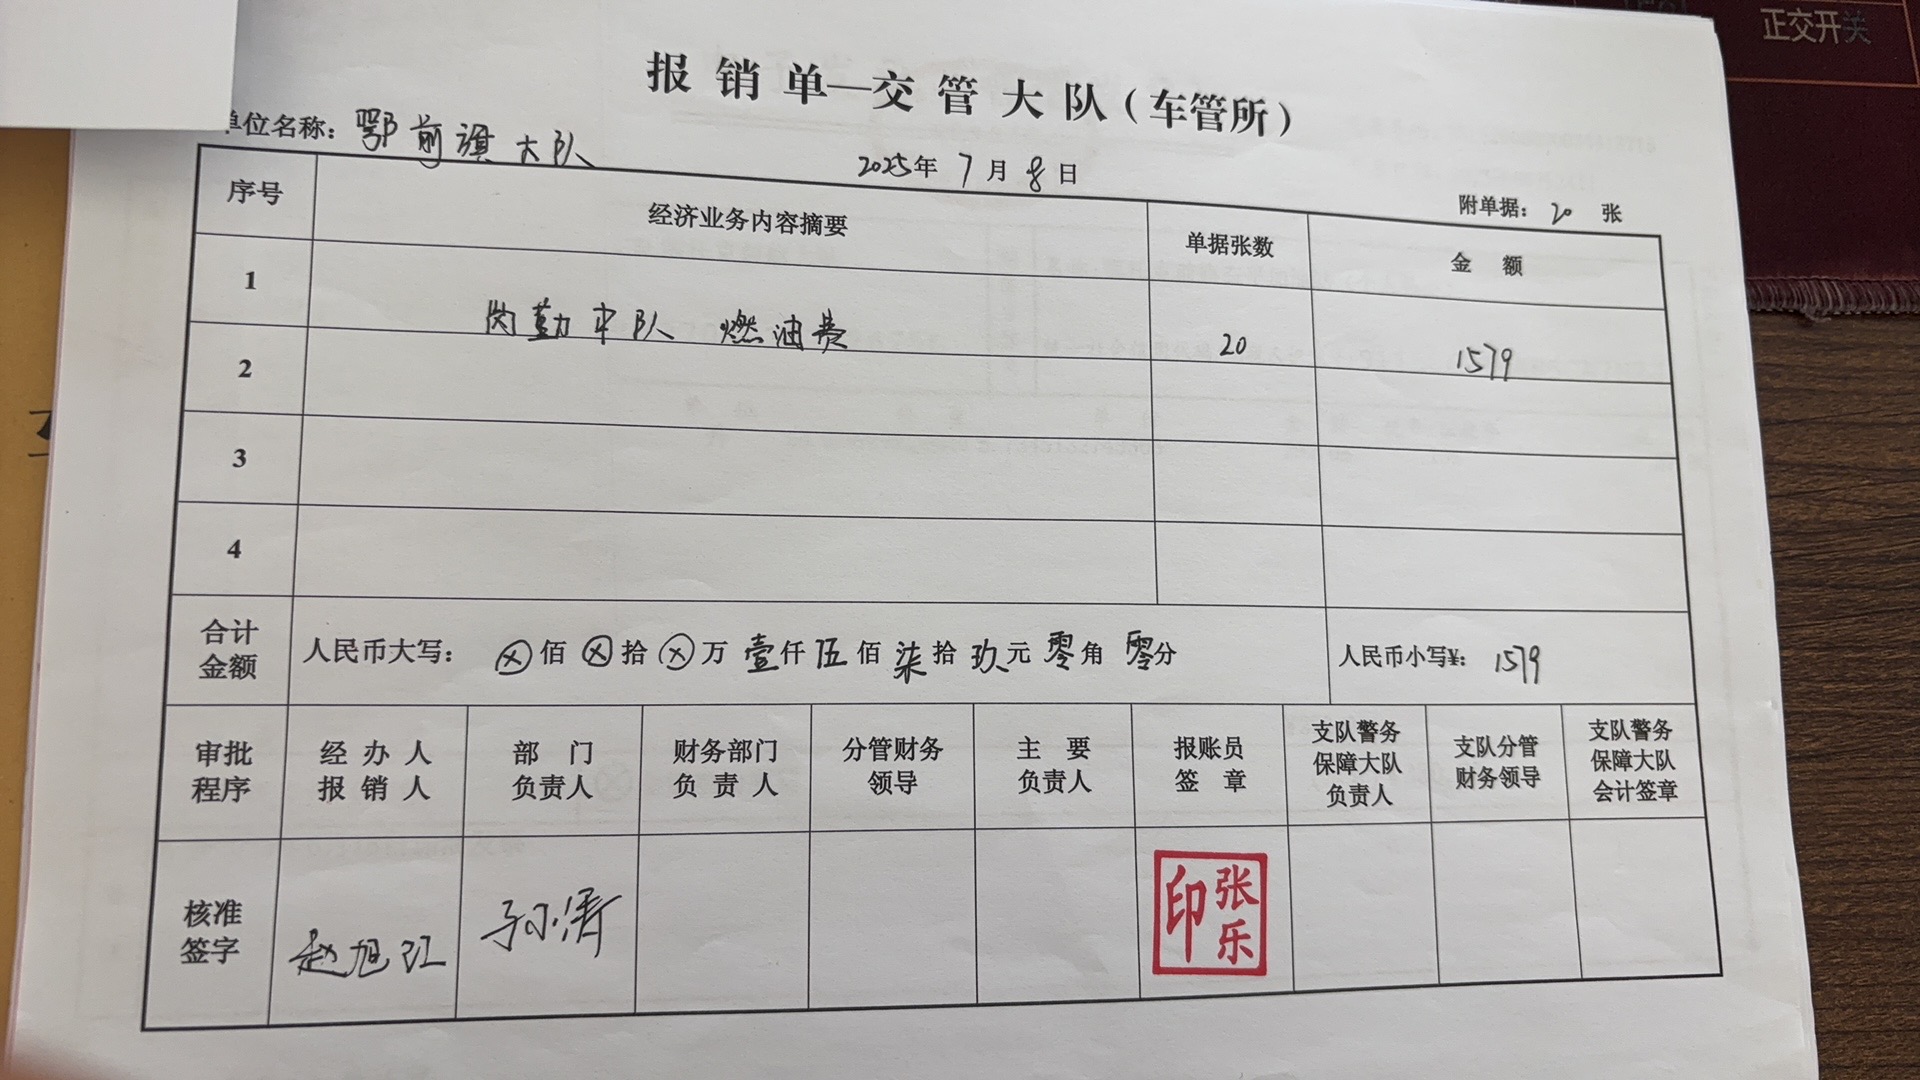 正交开关
报销单—交管大队(车管所)
单位名称: 鄂前旗大队
2025年 7月 8日
附单据: 20 张
序号 经济业务内容摘要 单据张数 金 额
1 内勤中队 燃油费 20 1579
2
3
4
合计金额 人民币大写: ⓧ佰 ⓧ拾 ⓧ万 壹仟 伍佰 柒拾 玖元 零角 零分 人民币小写¥: 1579
审批程序 经办人报销人 部门负责人 财务部门负责人 分管财务领导 主要负责人 报账员签章 支队警务保障大队负责人 支队分管财务领导 支队警务保障大队会计签章
核准签字 赵旭 孙涛 张乐印